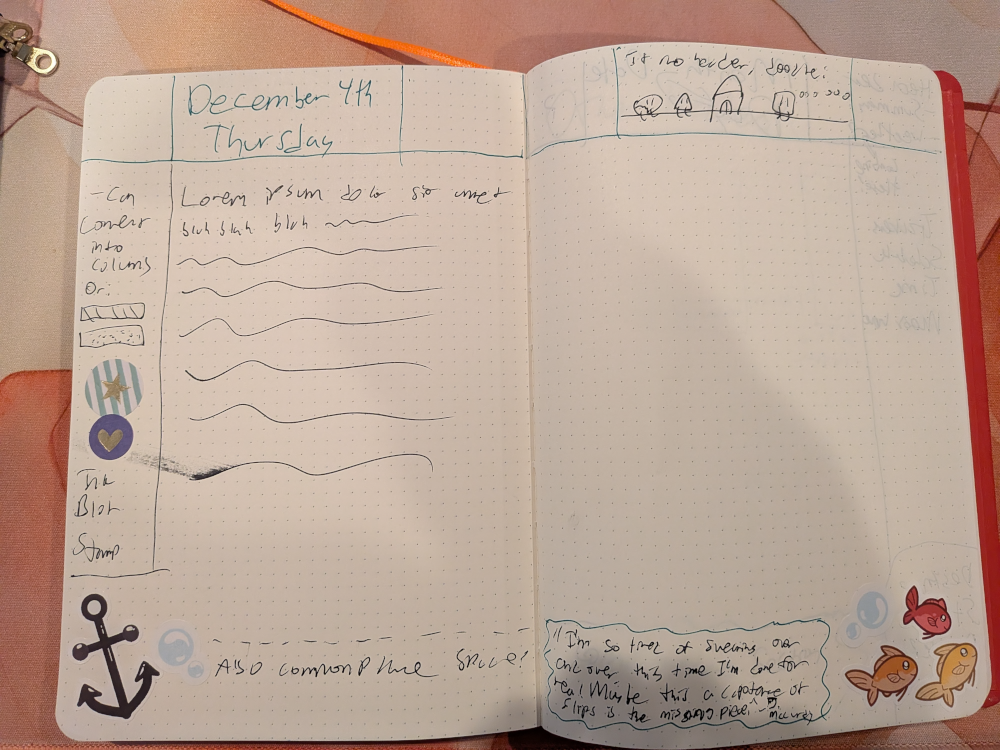 December 4th
Thursday
- Can
Convert
into
columns
Or:
Lorem ipsum dolor sit amet
blah blah blah
Ink
Blot
Stamp
Also commonplace space!
If no header, doodle:
"I'm so tired of swearing over
and over this time I'm done for
real! Maybe this a
slips is the missing piece"